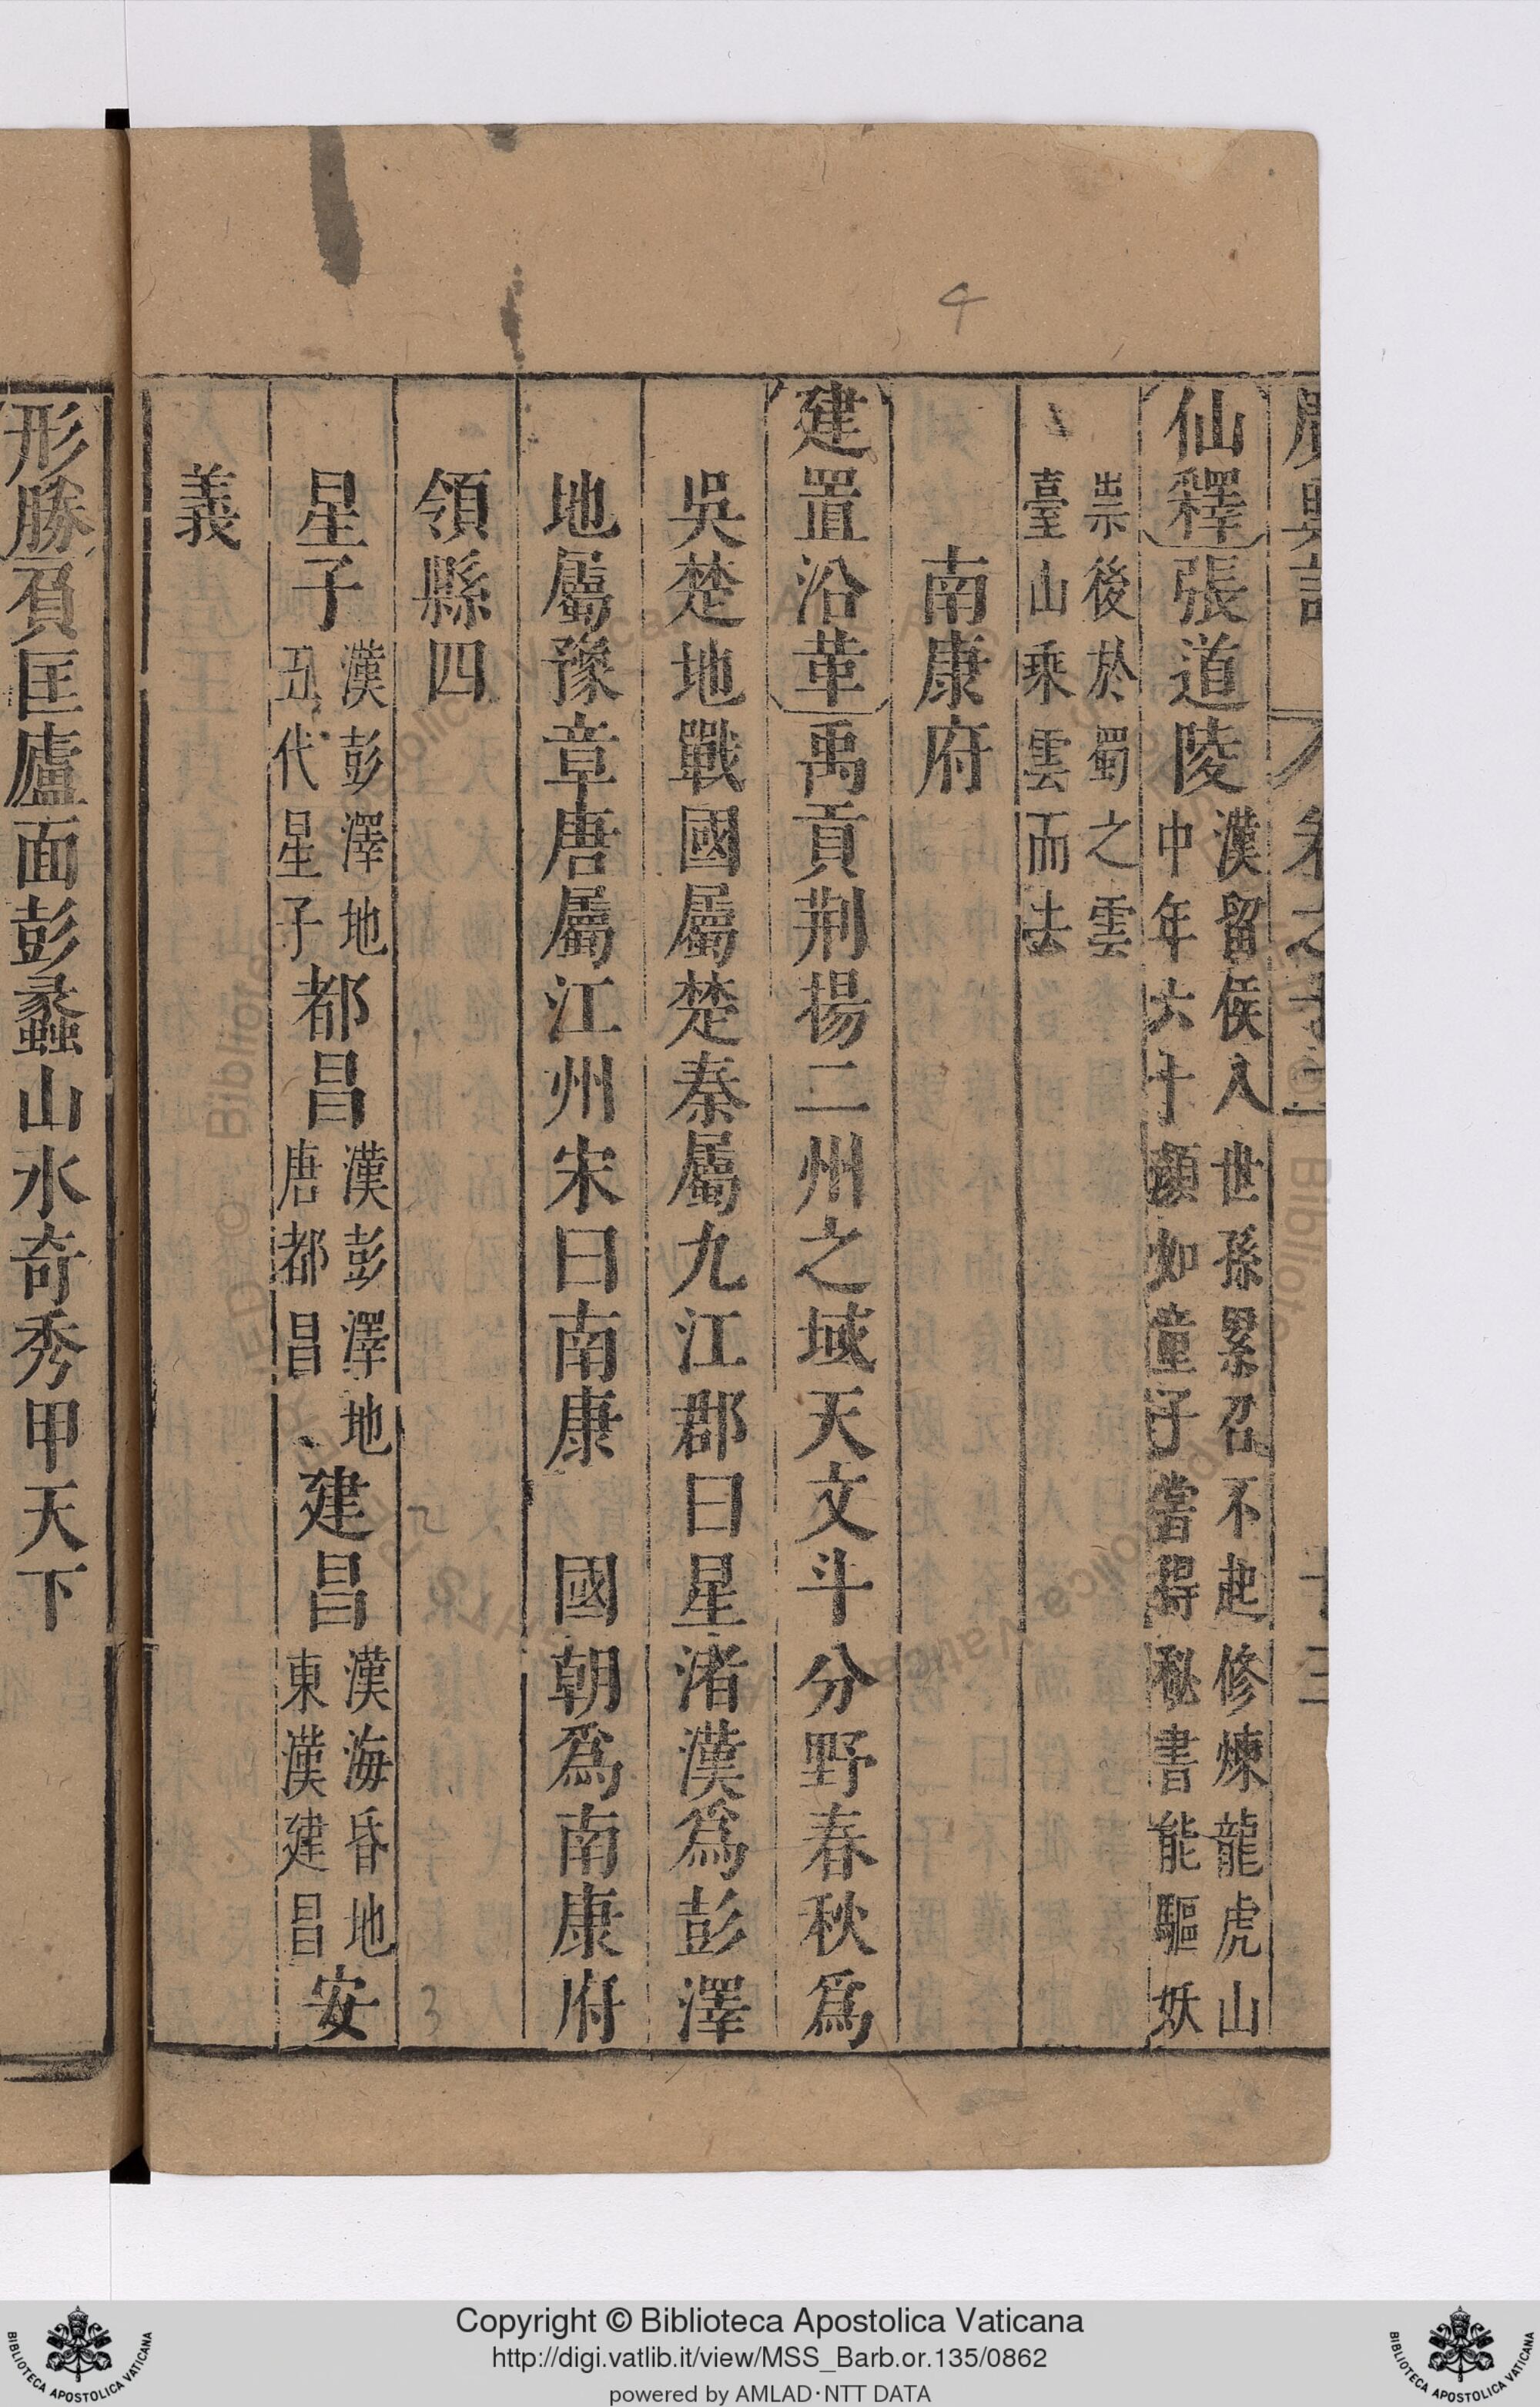 仙釋張道陵漢留侯八世孫累召不起修煉龍虎山
中年六十顏如童子嘗得秘書能驅妖
祟後於蜀之雲
臺山乘雲而去
南康府
建置沿革禹貢荆揚二州之域天文斗分野春秋爲
吳楚地戰國屬楚秦屬九江郡曰星渚漢爲彭澤
地屬豫章唐屬江州宋曰南康 國朝爲南康府
領縣四
星子漢彭澤地五代星子都昌漢彭澤地唐都昌建昌漢海昏地東漢建昌安
義
形勝負匡廬面彭蠡山水奇秀甲天下
4
3
Copyright © Biblioteca Apostolica Vaticana
http://digi.vatlib.it/view/MSS_Barb.or.135/0862
powered by AMLAD·NTT DATA
BIBLIOTECA APOSTOLICA VATICANA
BIBLIOTECA APOSTOLICA VATICANA